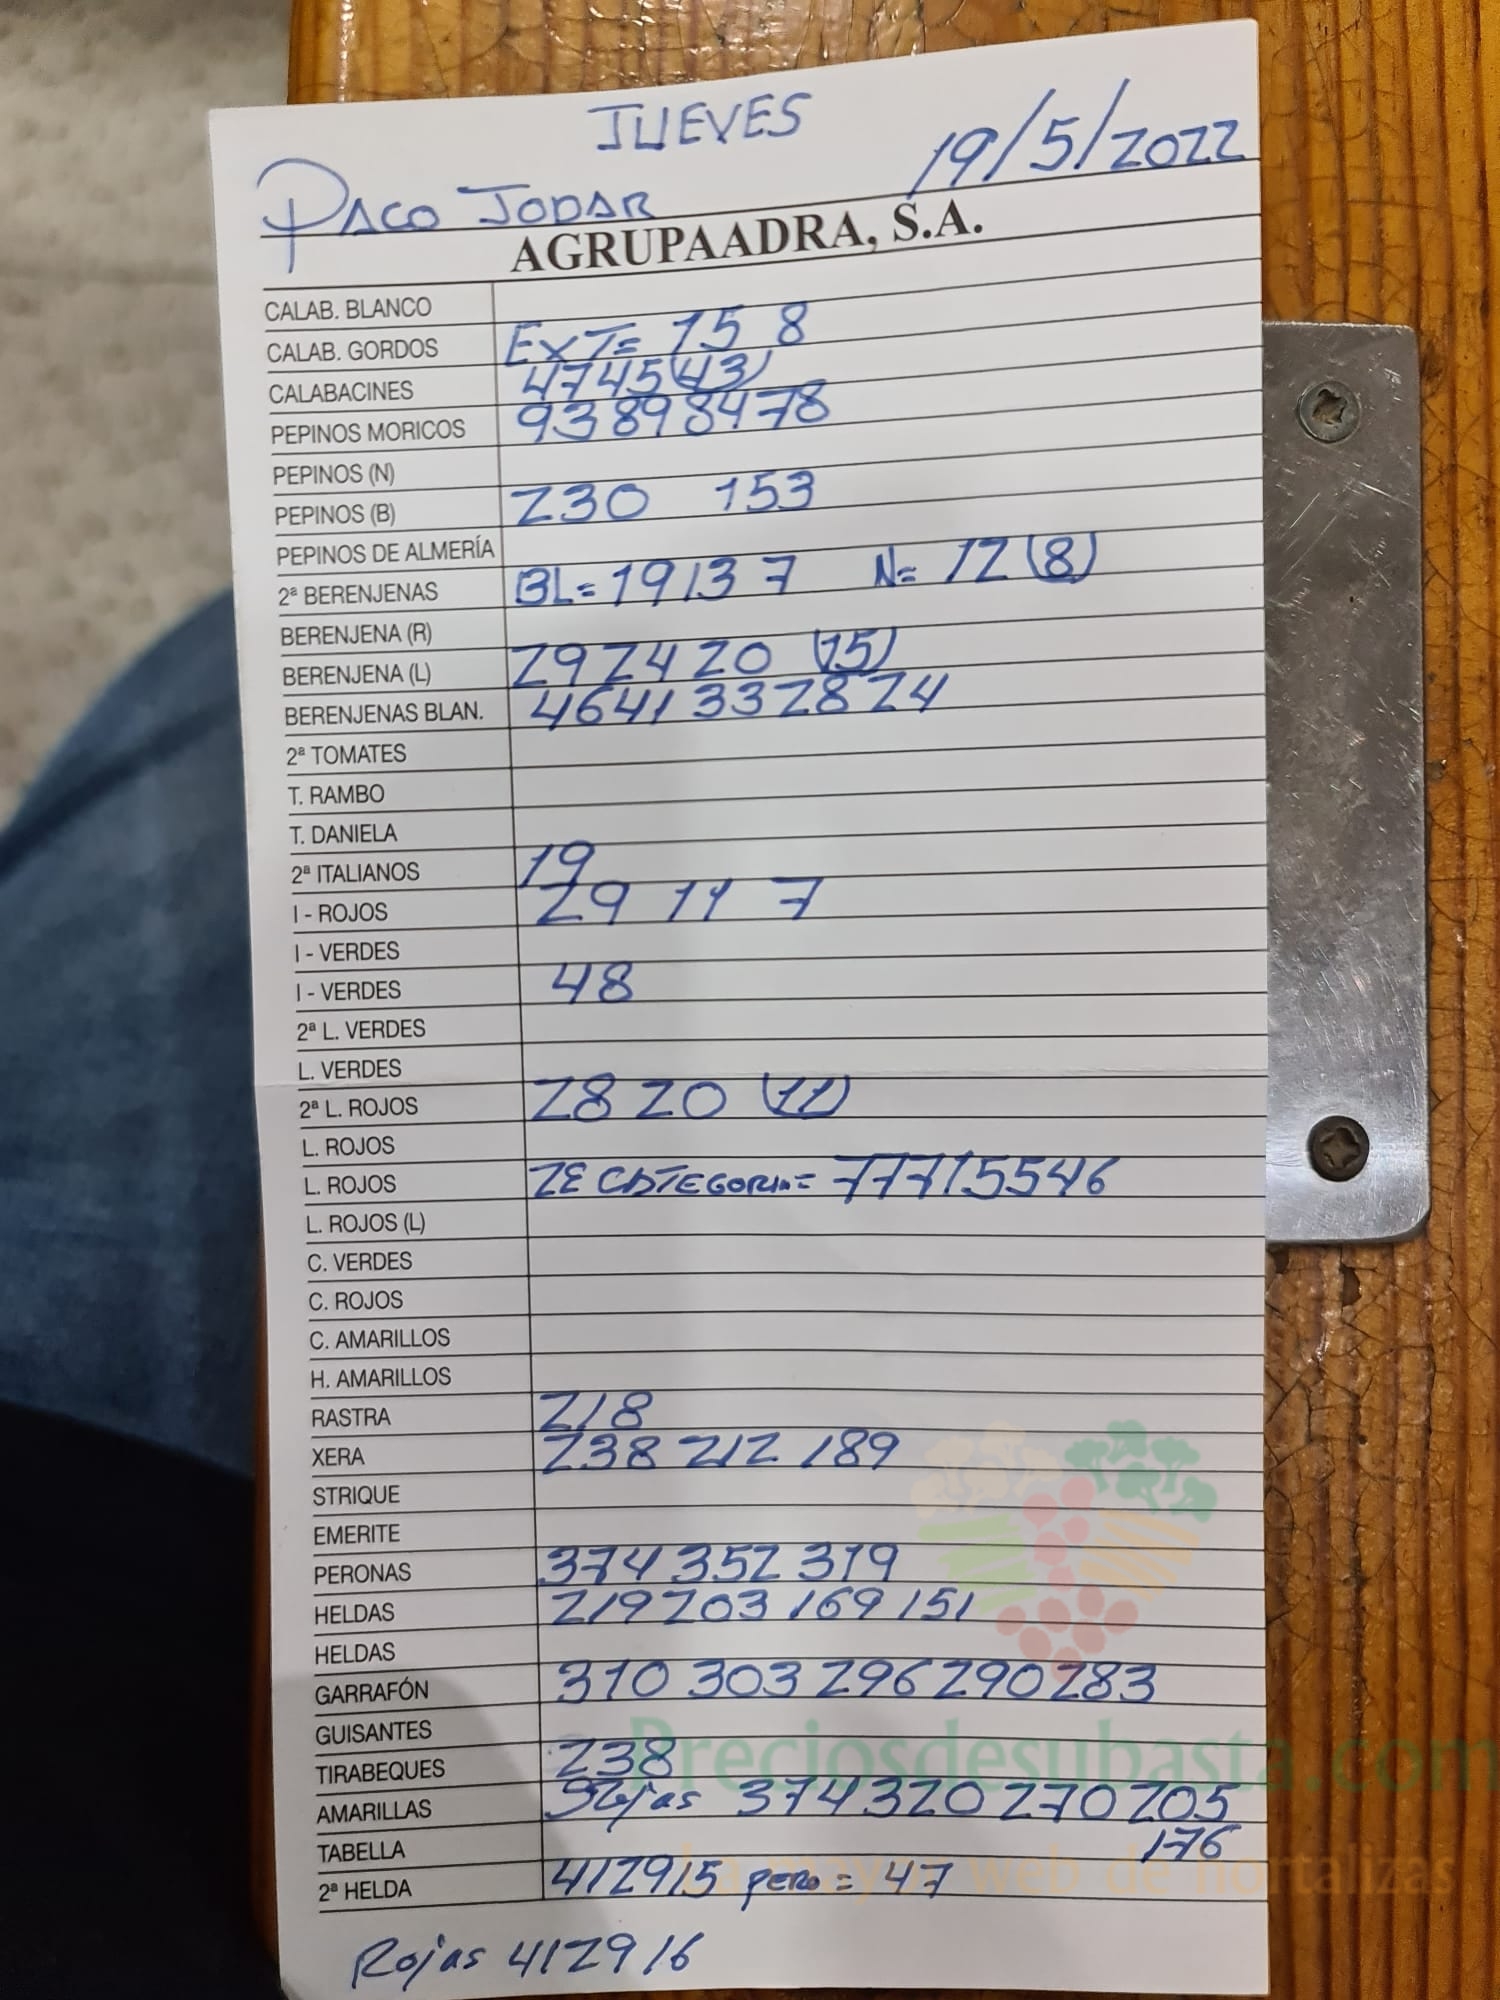 JUEVES
19/5/2022
PACO JODAR
AGRUPAADRA, S.A.
CALAB. BLANCO
CALAB. GORDOS EXT= 15 8
CALABACINES 4745(43)
PEPINOS MORICOS 93898478
PEPINOS (N)
PEPINOS (B) 230 153
PEPINOS DE ALMERÍA
2ª BERENJENAS BL=19137 N= 12(8)
BERENJENA (R)
BERENJENA (L) 292420 (15)
BERENJENAS BLAN. 4641332824
2ª TOMATES
T. RAMBO
T. DANIELA
2ª ITALIANOS 19
I - ROJOS 29 11 7
I - VERDES
I - VERDES 48
2ª L. VERDES
L. VERDES
2ª L. ROJOS 2820 (11)
L. ROJOS
L. ROJOS 2E CATEGORIA= 77715546
L. ROJOS (L)
C. VERDES
C. ROJOS
C. AMARILLOS
H. AMARILLOS
RASTRA 218
XERA 238 212 189
STRIQUE
EMERITE
PERONAS 374 352 319
HELDAS 219 203 169 151
HELDAS
GARRAFÓN 310 303 296 290 283
GUISANTES
TIRABEQUES 238
Preciosdesubasta.com
AMARILLAS 374 320 270 205
TABELLA 176
La mayor web de hortalizas
2ª HELDA 412915 pero = 47
Rojas 412916